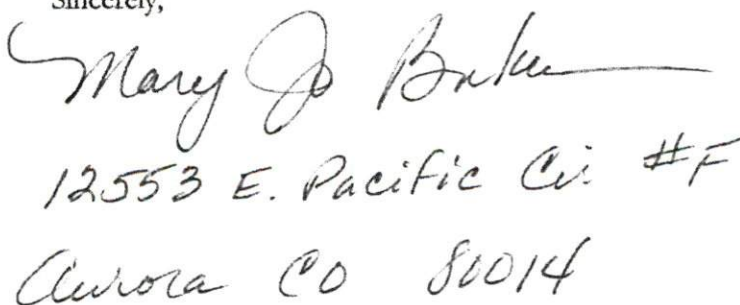 Sincerely,
Mary Jo Baker
12553 E. Pacific Cir #F
Aurora CO 80014